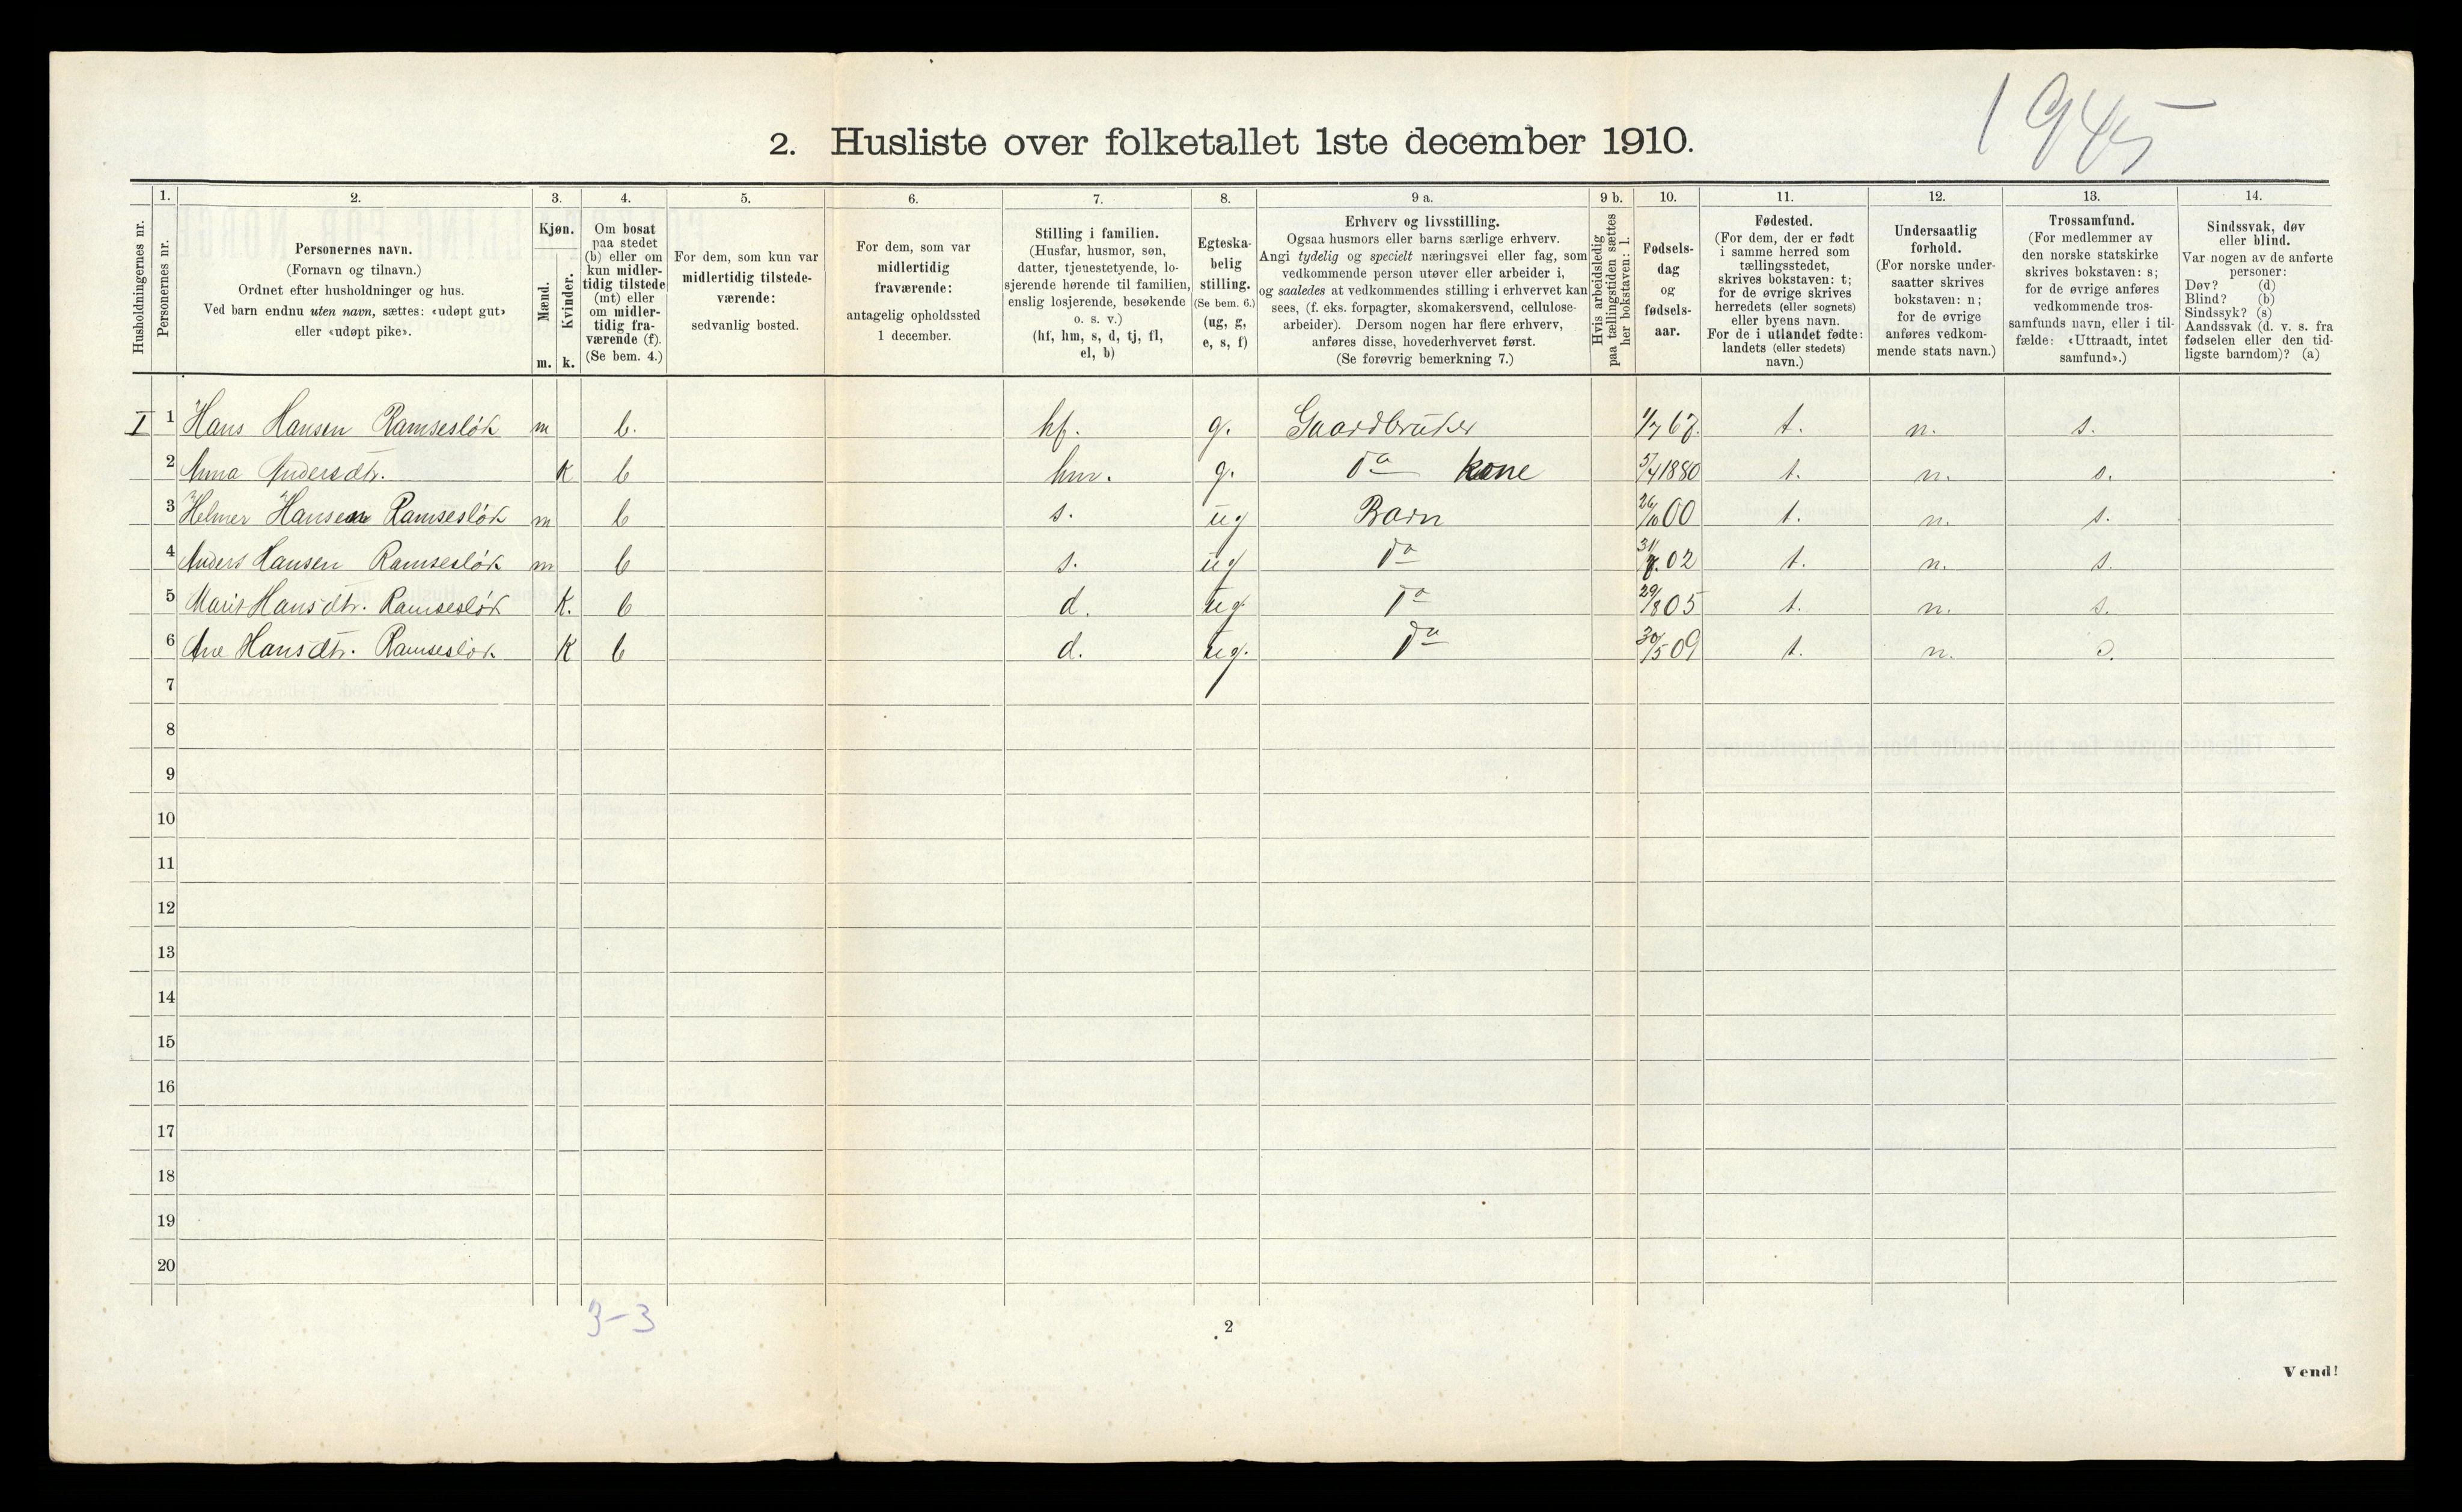 1945
2. Husliste over folketallet 1ste december 1910.
Husholdningernes nr.
1. Personernes nr.
2. Personernes navn. (Fornavn og tilnavn.) Ordnet efter husholdninger og hus. Ved barn endnu uten navn, sættes: «udøpt gut» eller «udøpt pike».
3. Kjøn. Mænd. m. Kvinder. k.
4. Om bosat paa stedet (b) eller om kun midlertidig tilstede (mt) eller om midlertidig fraværende (f). (Se bem. 4.)
5. For dem, som kun var midlertidig tilstedeværende: sedvanlig bosted.
6. For dem, som var midlertidig fraværende: antagelig opholdssted 1 december.
7. Stilling i familien. (Husfar, husmor, søn, datter, tjenestetyende, losjerende hørende til familien, enslig losjerende, besøkende o. s. v.) (hf, hm, s, d, tj, fl, el, b)
8. Egteskabelig stilling. (Se bem. 6.) (ug, g, e, s, f)
9 a. Erhverv og livsstilling. Ogsaa husmors eller barns særlige erhverv. Angi tydelig og specielt næringsvei eller fag, som vedkommende person utøver eller arbeider i, og saaledes at vedkommendes stilling i erhvervet kan sees, (f. eks. forpagter, skomakersvend, cellulosearbeider). Dersom nogen har flere erhverv, anføres disse, hovederhvervet først. (Se forøvrig bemerkning 7.)
9 b. Hvis arbeidsledig paa tællingstiden sættes her bokstaven: l.
10. Fødselsdag og fødselsaar.
11. Fødested. (For dem, der er født i samme herred som tællingsstedet, skrives bokstaven: t; for de øvrige skrives herredets (eller sognets) eller byens navn. For de i utlandet fødte: landets (eller stedets) navn.)
12. Undersaatlig forhold. (For norske undersaatter skrives bokstaven: n; for de øvrige anføres vedkommende stats navn.)
13. Trossamfund. (For medlemmer av den norske statskirke skrives bokstaven: s; for de øvrige anføres vedkommende trossamfunds navn, eller i tilfælde: «Uttraadt, intet samfund».)
14. Sindssvak, døv eller blind. Var nogen av de anførte personer: Døv? (d) Blind? (b) Sindssyk? (s) Aandssvak (d. v. s. fra fødselen eller den tidligste barndom)? (a)
I 1 Hans Hansen Ramsesløk m b. hf. g. Gaardbruker 1/7 67. t. n. s.
2 Anna Andersdtr. K b hm. g. Do kone 5/4 1880 t. n. s.
3 Helmer Hansen Ramsesløk m b s. ug Barn 26/10 00 t. n. s.
4 Anders Hansen Ramsesløk m b s. ug Do 31/7. 02 t. n. s.
5 Marit Hansdtr. Ramsesløk K. b d. ug. Do 29/8 05 t. n. s.
6 Ane Hansdtr. Ramsesløk K b d. ug. Do 30/5 09 t. n. s.
7
8
9
10
11
12
13
14
15
16
17
18
19
20
3-3
2
Vend!